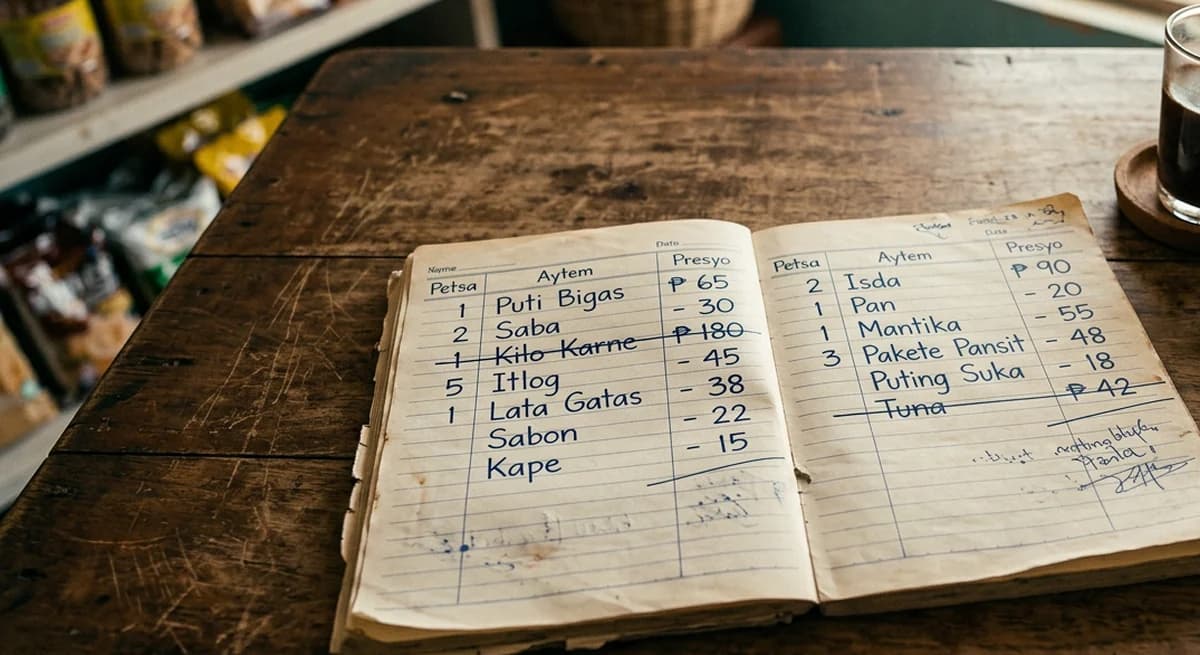 Name Date
Petsa Aytem Presyo
1 Puti Bigas ₱ 65
2 Saba - 30
1 Kilo Karne ₱ 180
5 Itlog - 45
1 Lata Gatas - 38
Sabon - 22
Kape - 15
Date
Petsa Aytem Presyo
2 Isda ₱ 90
1 Pan - 20
1 Mantika - 55
3 Pakete Pansit - 48
Puting Suka - 18
Tuna ₱ 42